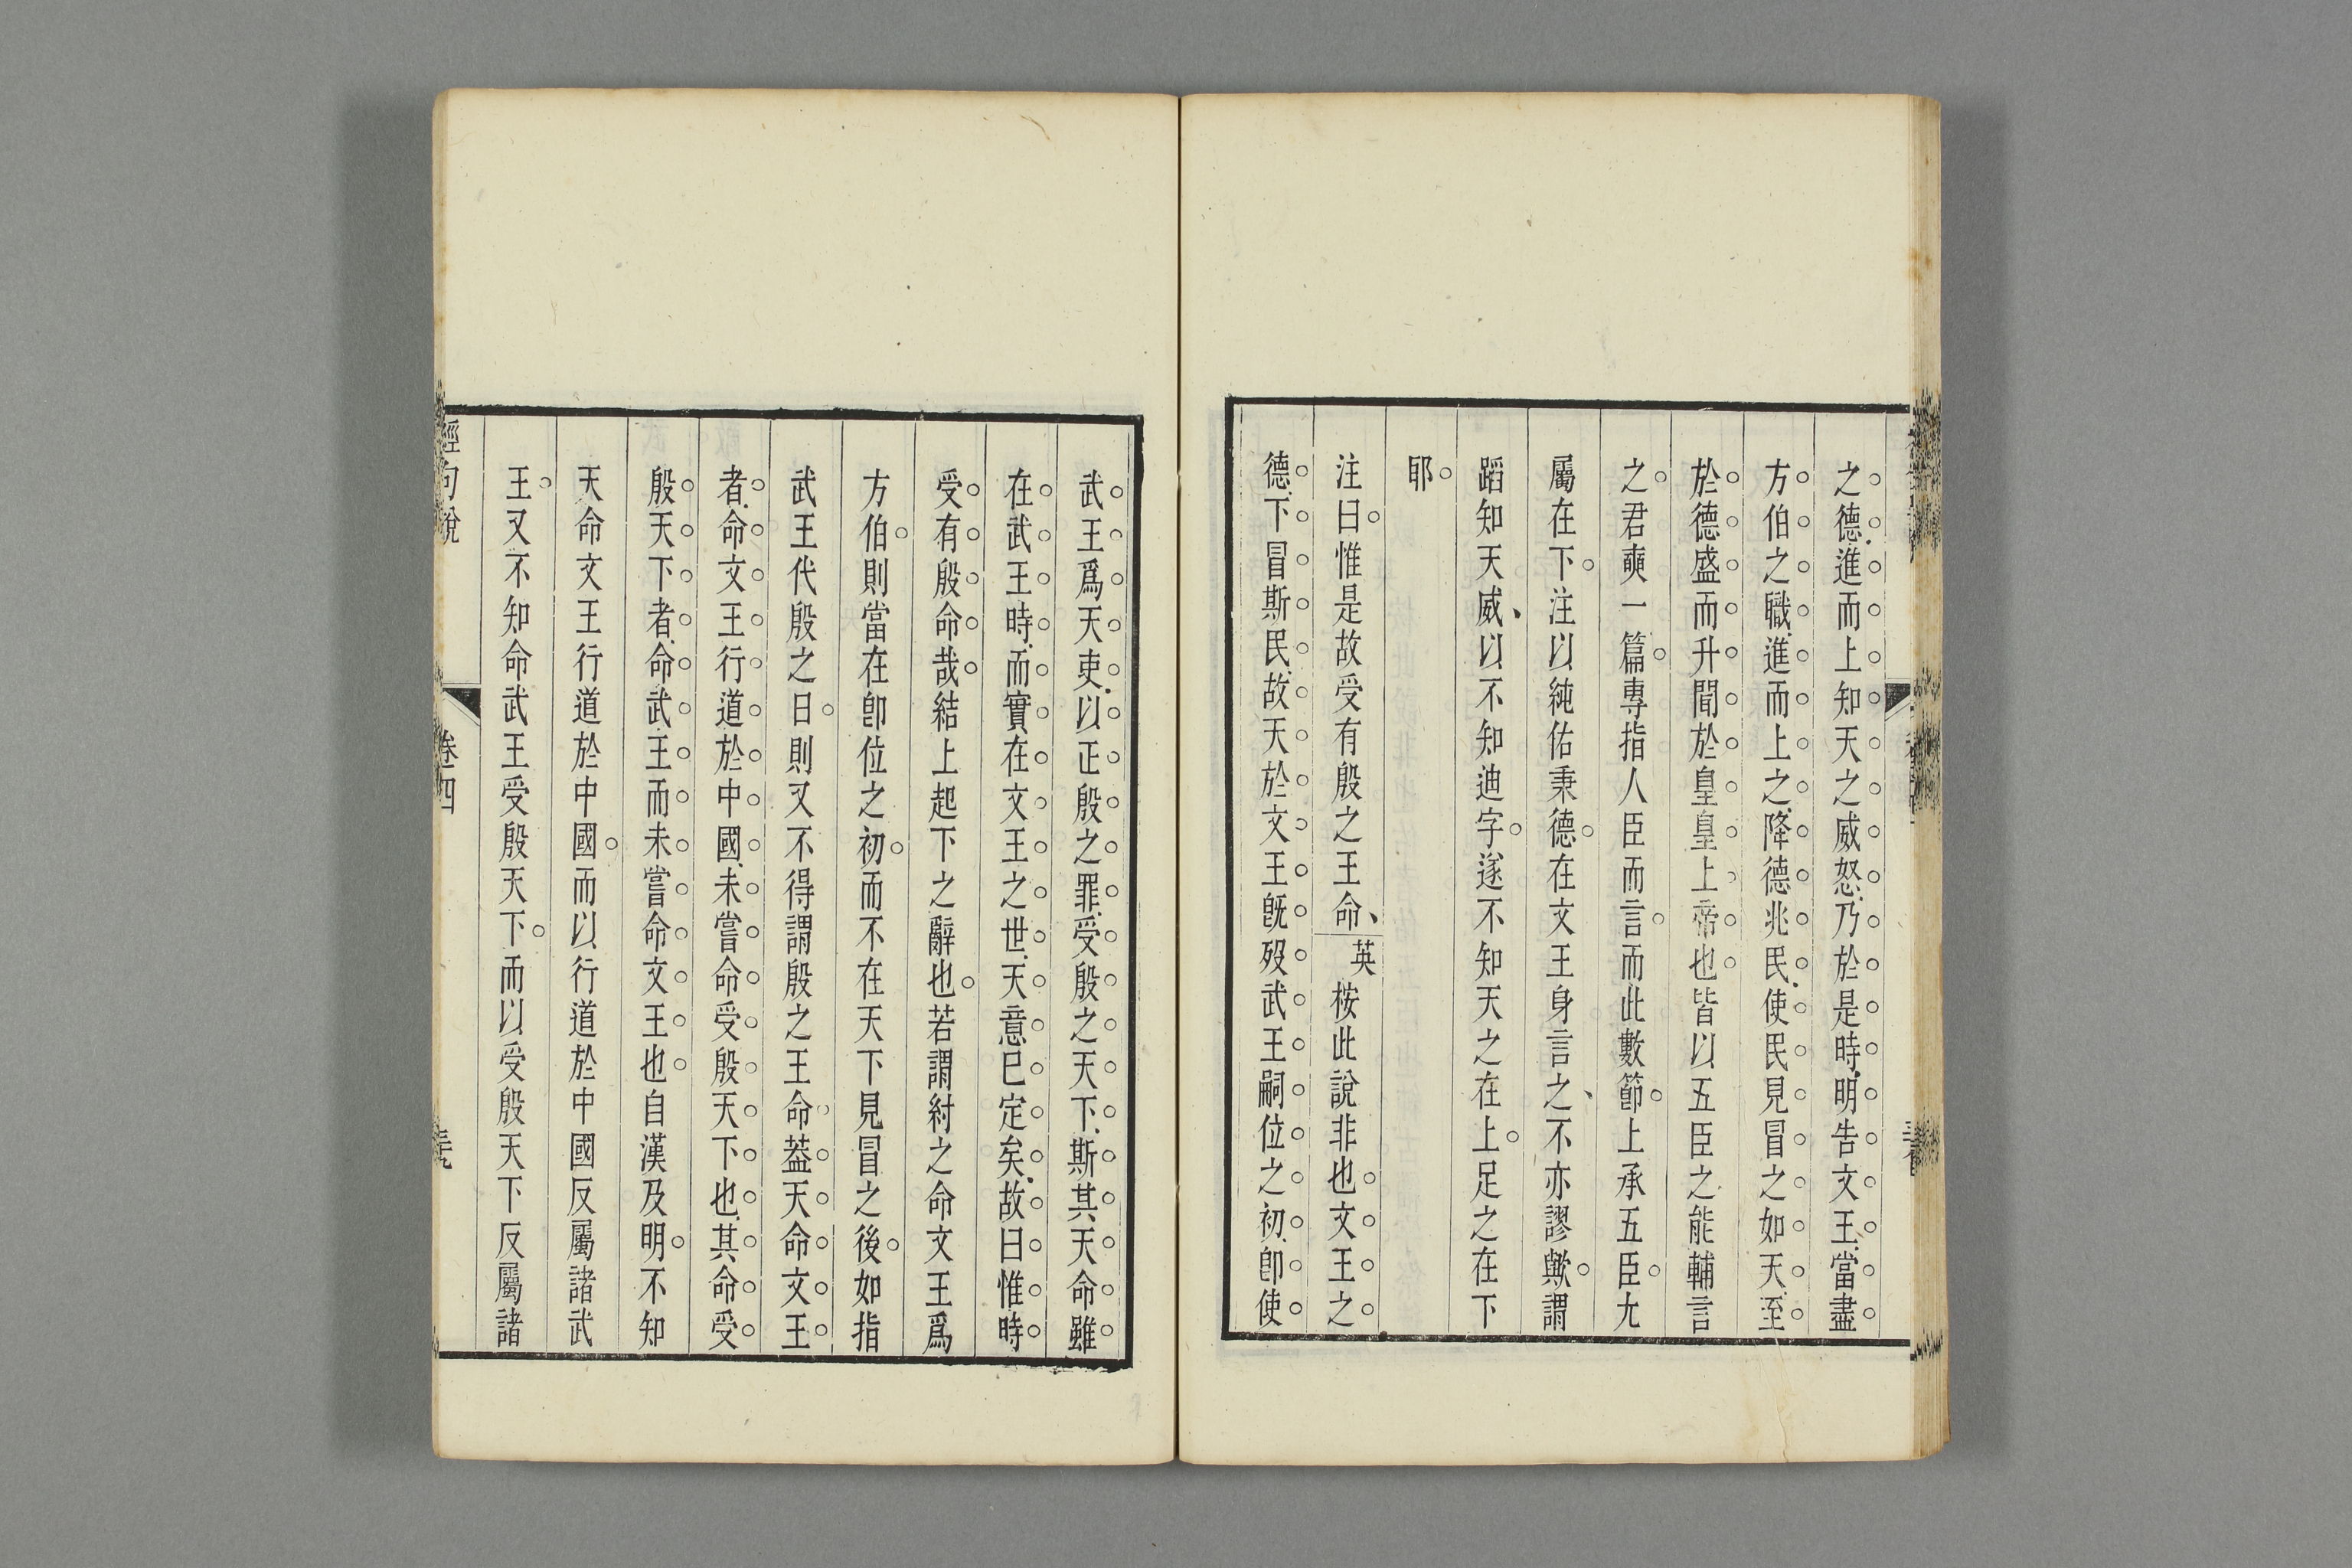 之德進而上知天之威怒乃於是時明告文王當盡
方伯之職進而上之降德兆民使民見冒之如天至
於德盛而升聞於皇皇上帝也皆以五臣之能輔言
之君奭一篇專指人臣而言而此數節上承五臣尢
屬在下注以純佑秉德在文王身言之不亦謬歟謂
蹈知天威以不知迪字遂不知天之在上足之在下
耶
注曰惟是故受有殷之王命英桉此說非也文王之
德下冒斯民故天於文王旣歿武王嗣位之初卽使
武王爲天吏以正殷之罪受殷之天下斯其天命雖
在武王時而實在文王之世天意已定矣故曰惟時
受有殷命哉結上起下之辭也若謂紂之命文王爲
方伯則當在卽位之初而不在天下見冒之後如指
武王代殷之日則又不得謂殷之王命葢天命文王
者命文王行道於中國未嘗命受殷天下也其命受
殷天下者命武王而未嘗命文王也自漢及明不知
天命文王行道於中國而以行道於中國反屬諸武
王又不知命武王受殷天下而以受殷天下反屬諸
經句說
卷四